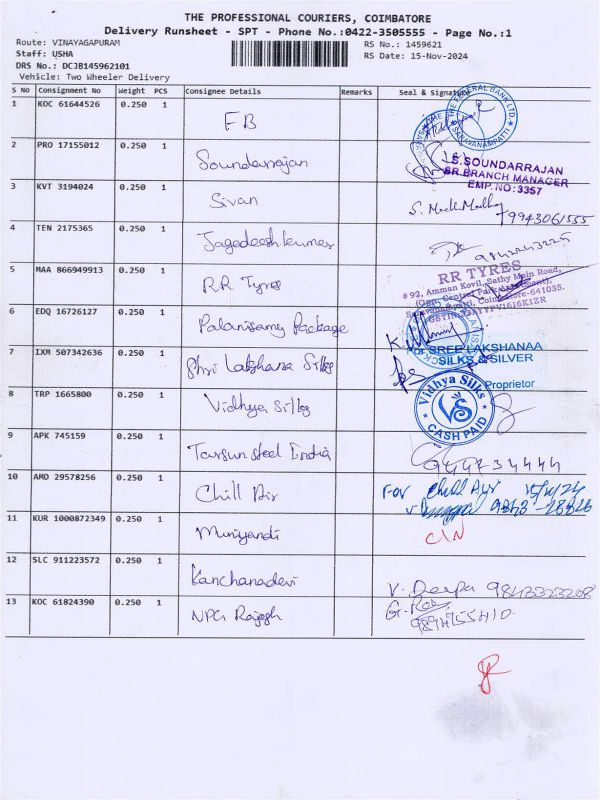 THE PROFESSIONAL COURIERS, COIMBATORE
Delivery Runsheet - SPT - Phone No.:0422-3505555 - Page No.:1
Route: VINAYAGAPURAM
Staff: USHA
DRS No.: DCJB145962101
Vehicle: Two Wheeler Delivery
RS No.: 1459621
RS Date: 15-Nov-2024
S No Consignment No Weight PCS Consignee Details Remarks Seal & Signature
1 KOC 61644526 0.250 1 FB
THE FEDERAL BANK LTD.
SARAVANAMPATTI
2 PRO 17155012 0.250 1 Soundarrajan
S.SOUNDARRAJAN
SR BRANCH MANAGER
EMP.NO:3357
3 KVT 3194024 0.250 1 Sivan
79943061555
4 TEN 2175365 0.250 1 Jagadeeshkumar
5 MAA 866949913 0.250 1 RR Tyres
RR TYRES
# 92, Amman Kovil, Sathy Main Road,
Coimbatore-641035.
6 EDQ 16726127 0.250 1 Palanisamy Package
7 IXM 507342636 0.250 1 Shri Lakshana Silks
For SREE LAKSHANAA
SILKS & SILVER
Proprietor
8 TRP 1665800 0.250 1 Vidhya Silks
Vidhya Silks
VS
CASH PAID
9 APK 745159 0.250 1 Tarsun steel India
10 AMD 29578256 0.250 1 Chill Air
For Chill Air 15/11/24
11 KUR 1000872349 0.250 1 Muniyandi
12 SLC 911223572 0.250 1 Kanchanadevi
V. Deepa 9843323208
13 KOC 61824390 0.250 1 NPG Rajesh